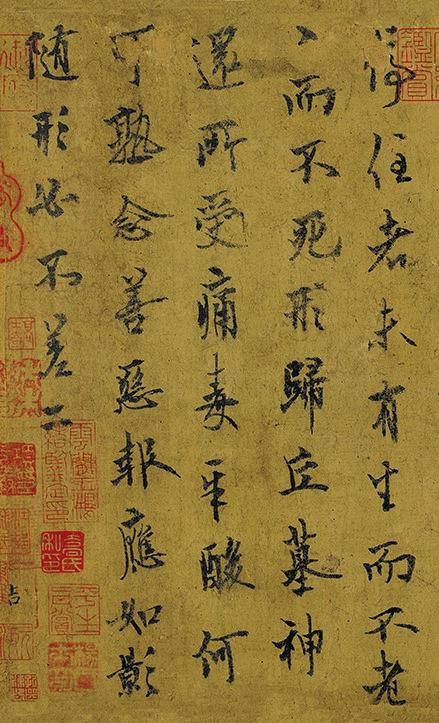 停住者未有生而不老
〻而不死形歸丘墓神
還所受痛毒辛酸何
可熟念善惡報應如影
随形必不差二